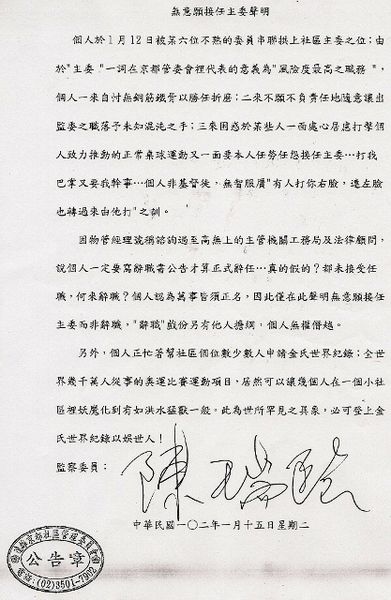 無意願接任主委聲明
個人於1月12日被某六位不熟的委員串聯拱上社區主委之位；由
於"主委"一詞在京都管委會裡代表的意義為"風險度最高之職務"，
個人一來自忖無銅筋鐵骨以勝任折磨；二來不願不負責任地隨意讓出
監委之職落予未知混沌之手；三來困惑於某些人一面處心居慮打擊個
人致力推動的正常桌球運動又一面要本人任勞任怨接任主委…打我
巴掌又要我幹事…個人非基督徒，無智服膺"有人打你右臉，連左臉
也轉過來由他打"之訓。
因物管經理號稱諮詢過至高無上的主管機關工務局及法律顧問，
說個人一定要寫辭職書公告才算正式辭任…真的假的？都未接受任
職，何來辭職？個人認為萬事皆須正名，因此僅在此聲明無意願接任
主委而非辭職，"辭職"戲份另有他人擔綱，個人無權僭越。
另外，個人正忙著幫社區個位數少數人申請金氏世界紀錄：全世
界幾千萬人從事的奧運比賽運動項目，居然可以讓幾個人在一個小社
區裡妖魔化到有如洪水猛獸一般。此為世所罕見之異象，必可登上金
氏世界紀錄以娛世人！
監察委員：
陳
中華民國一〇二年一月十五日星期二
京都社區管理委員會
公告章
電話：(02)8501-7902